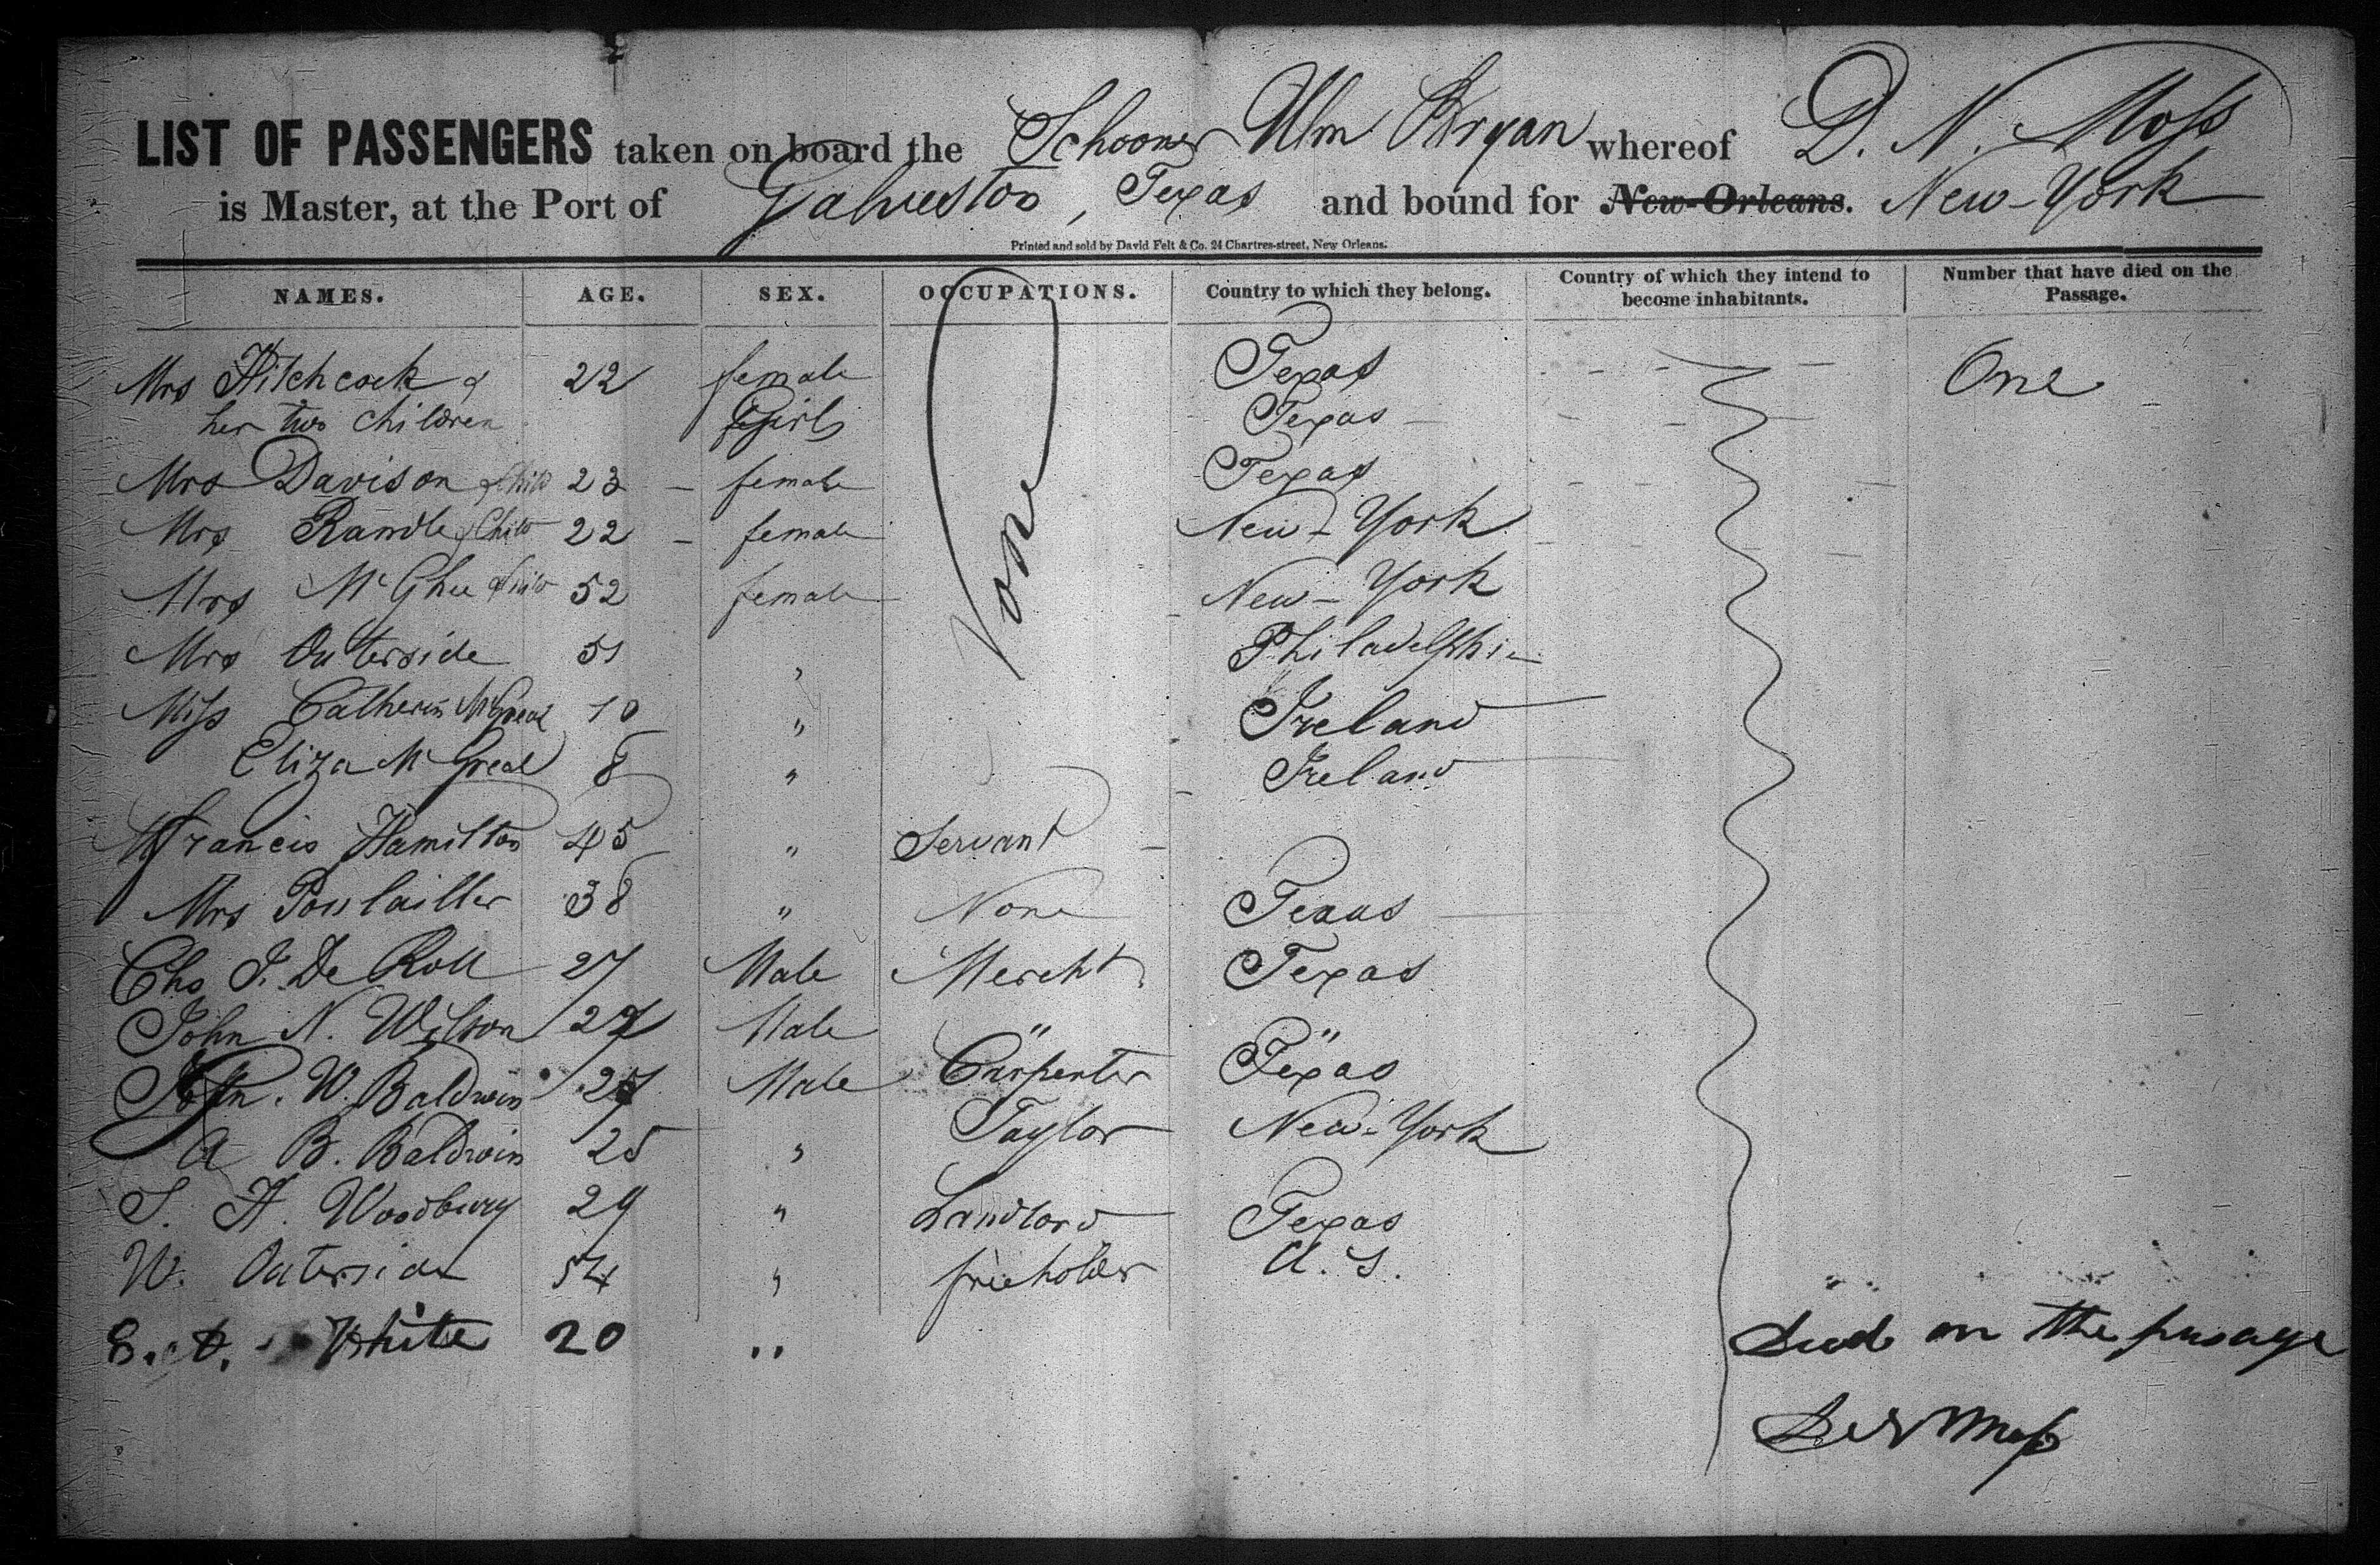 LIST OF PASSENGERS taken on board the Schooner Wm Bryan whereof D. N. Moss
is Master, at the Port of Galveston, Texas and bound for New-Orleans. New-York
Printed and sold by David Felt & Co. 24 Chartres-street, New Orleans.
NAMES. AGE. SEX. OCCUPATIONS. Country to which they belong. Country of which they intend to become inhabitants. Number that have died on the Passage.
Mrs Hitchcock & 22 female None Texas One
her two children Girls Texas
Mrs Davison & Child 23 female Texas
Mrs Randle & Child 22 female New-York
Mrs McGhee & Child 52 female New-York
Mrs Outerside 51 " Philadelphia
Miss Catherin McGreal 10 " Ireland
Eliza McGreal 8 " Ireland
Francis Hamilton 45 " Servant
Mrs 38 " None Texas
Chs J. De 27 Male Mercht Texas
John N. Wilson 27 Male " "
W. Baldwin 27 Male Carpenter Texas
A B. Baldwin 25 " Taylor New-York
S. H. Woodbury 29 " Landlord Texas
W. Outerside 54 " freeholder U. S.
White 20 " died on the passage
D N Moss